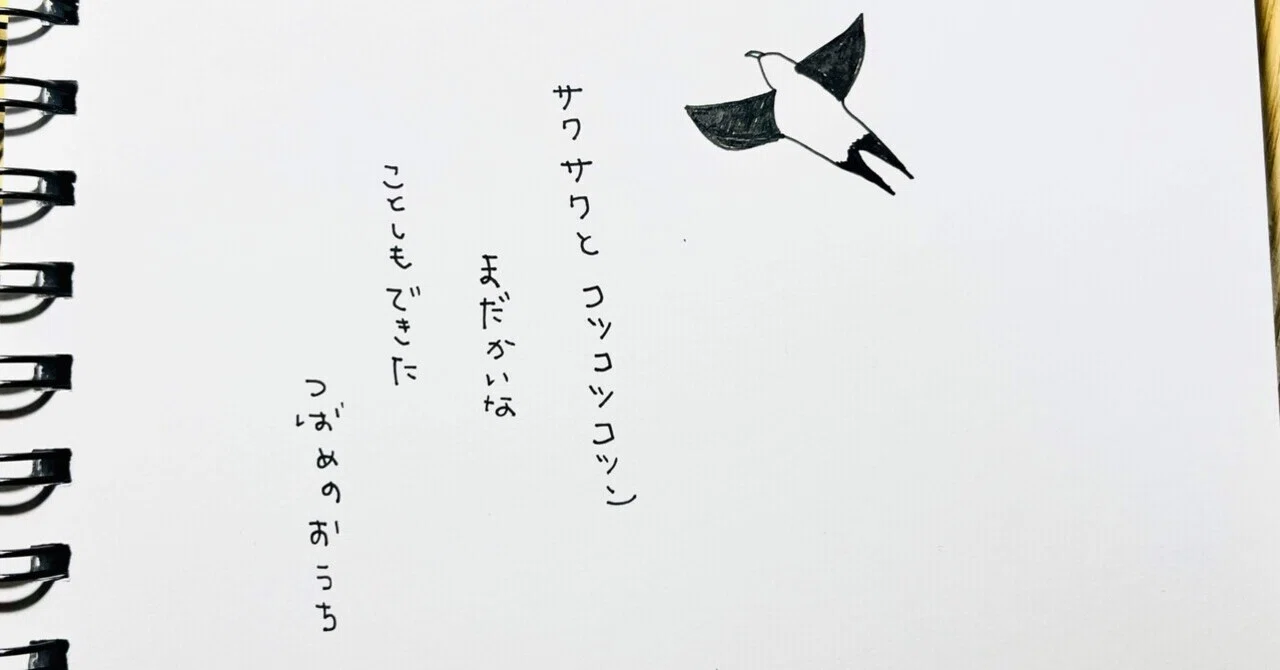 サワサワと コツコツコツン
まだかいな
ことしもできた
つばめのおうち